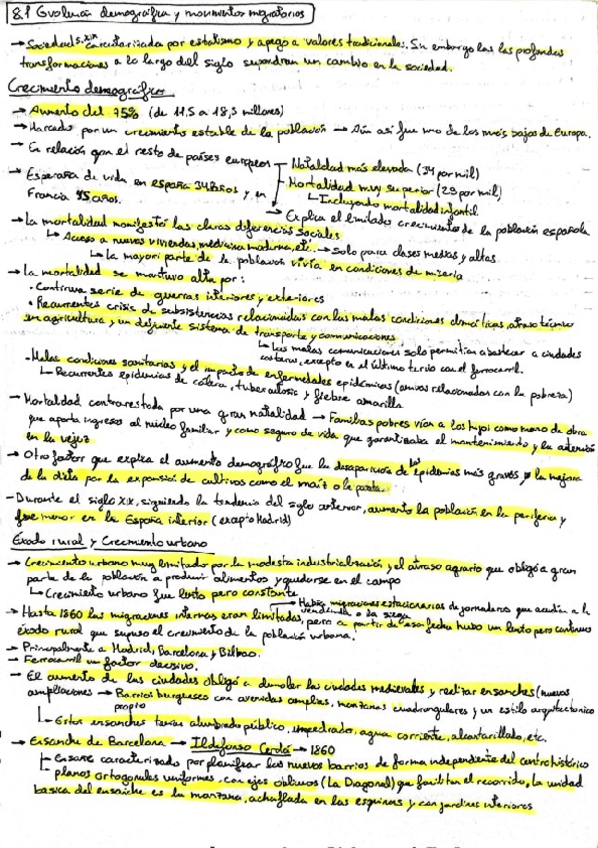 8.1 Evolución demográfica y movimientos migratorios
→ Sociedad s.XIX caracterizada por estatismo y apego a valores tradicionales. Sin embargo las profundas
transformaciones a lo largo del siglo supondran un cambio en la sociedad.
Crecimiento demográfico
→ Aumento del 75% (de 11,5 a 18,3 millones)
→ Marcado por un crecimiento estable de la población → Aún así fue uno de los más bajos de Europa.
→ En relación con el resto de países europeos
Natalidad más elevada (34 por mil)
Mortalidad muy superior (29 por mil)
↳ Incluyendo mortalidad infantil
→ Esperanza de vida en españa 34 años y en
Francia 45 años.
→ Explica el limitado crecimiento de la población española
→ La mortalidad manifestó las claras diferencias sociales
↳ Acceso a nuevas viviendas, medicina moderna, etc. → Solo para clases medias y altas
↳ La mayori parte de la población vivía en condiciones de miseria
→ La mortalidad se mantuvo alta por:
· Continua serie de guerras interiores y exteriores
· Recurrentes crisis de subsistencias relacionadas con las malas condiciones climáticas, atraso técnico
en agricultura y un deficiente sistema de transporte y comunicaciones
↳ Las malas comunicaciones solo permitían abastecer a ciudades
costeras, excepto en el último tercio con el ferrocarril.
· Malas condiciones sanitarias y el impacto de enfermedades epidémicas (ambas relacionadas con la pobreza)
↳ Recurrentes epidemias de cólera, tuberculosis y fiebre amarilla
→ Mortalidad contrarrestada por una gran natalidad → Familias pobres vían a los hijos como mano de obra
que aporta ingresos al núcleo familiar y como seguro de vida que garantizaba el mantenimiento y la atención
en la vejez
→ Otro factor que explica el aumento demográfico fue la desaparición de las epidemias más graves y la mejora
de la dieta por la expansión de cultivos como el maíz o la patata.
- Durante el siglo XIX, siguiendo la tendencia del siglo anterior, aumento la población en la periferia y
fue menor en la España interior (excepto Madrid)
Exodo rural y Crecimiento urbano
→ Crecimiento urbano muy limitado por la modesta industrialización y el atraso agrario que obligó a gran
parte de la población a producir alimentos y quedarse en el campo
↳ Crecimiento urbano fue lento pero constante
→ Había migraciones estacionarias de jornaleros que acudían a la
vendimia o la siega
→ Hasta 1860 las migraciones internas eran limitadas, pero a partir de esa fecha hubo un lento pero continuo
éxodo rural que supuso el crecimiento de la población urbana.
→ Principalmente a Madrid, Barcelona y Bilbao.
→ Ferrocarril un factor decisivo.
→ El aumento de las ciudades obligó a demoler las ciudades medievales y realizar ensanches (nuevas
ampliaciones → Barrios burgueses con avenidas amplias, manzanas cuadrangulares y un estilo arquitectonico
propio
↳ Estos ensanches tenían alumbrado público, empedrado, agua corriente, alcantarillado, etc.
→ Ensanche de Barcelona → Ildefonso Cerdá → 1860
Ensanche caracterizado por planificar los nuevos barrios de forma independiente del centro histórico
planos ortogonales uniformes, con ejes oblicuos (La Diagonal) que facilitan el recorrido, la unidad
basica del ensanche es la manzana, achaflada en las esquinas y con jardines interiores